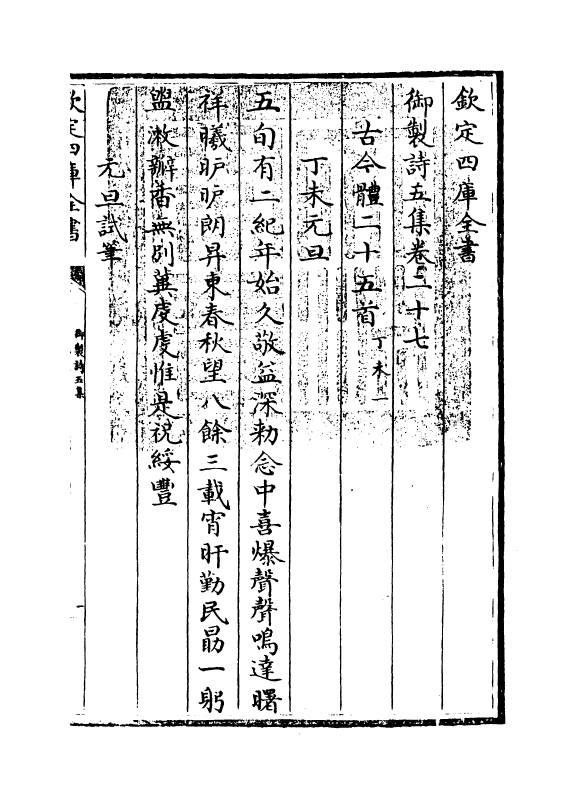 欽定四庫全書
御製詩五集卷二十七
古今體二十五首丁未一
丁未元旦
五旬有二紀年始久敬益深勅念中喜爆聲聲鳴達曙
祥曦昈昈朗昇東春秋望八餘三載宵旰勤民勗一躬
盥潄瓣香無別冀虔虔惟是祝綏豐
元旦試筆
欽定四庫全書
御製詩五集
一